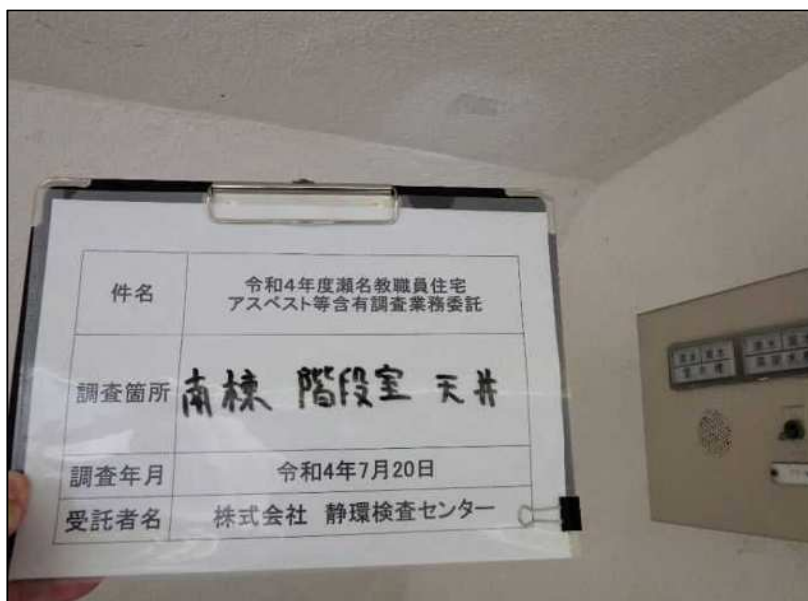 件名
令和4年度瀬名教職員住宅
アスベスト等含有調査業務委託
調査箇所
南棟 階段室 天井
調査年月
令和4年7月20日
受託者名
株式会社 静環検査センター